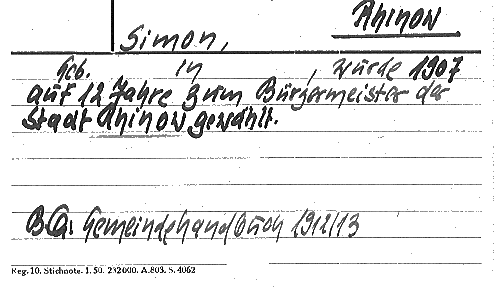 Rhinow
Simon,
Geb. in , wurde 1907
auf 12 Jahre zum Bürgermeister der
Stadt Rhinow gewählt.
Gemeindehandbuch 1912/13
Reg. 10. Stichnote. 1. 50. 232000. A. 803. S. 4062